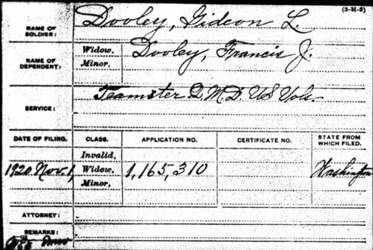 (3-H-3)
NAME OF SOLDIER: Dooley, Gideon L.
NAME OF DEPENDENT: Widow, Dooley, Francis J.
Minor,
SERVICE: Teamster Q.M.D. US Vols.
DATE OF FILING. CLASS. APPLICATION NO. CERTIFICATE NO. STATE FROM WHICH FILED.
Invalid,
1920. Nov. 1, Widow, 1,165,310 Washington
Minor,
ATTORNEY:
REMARKS: